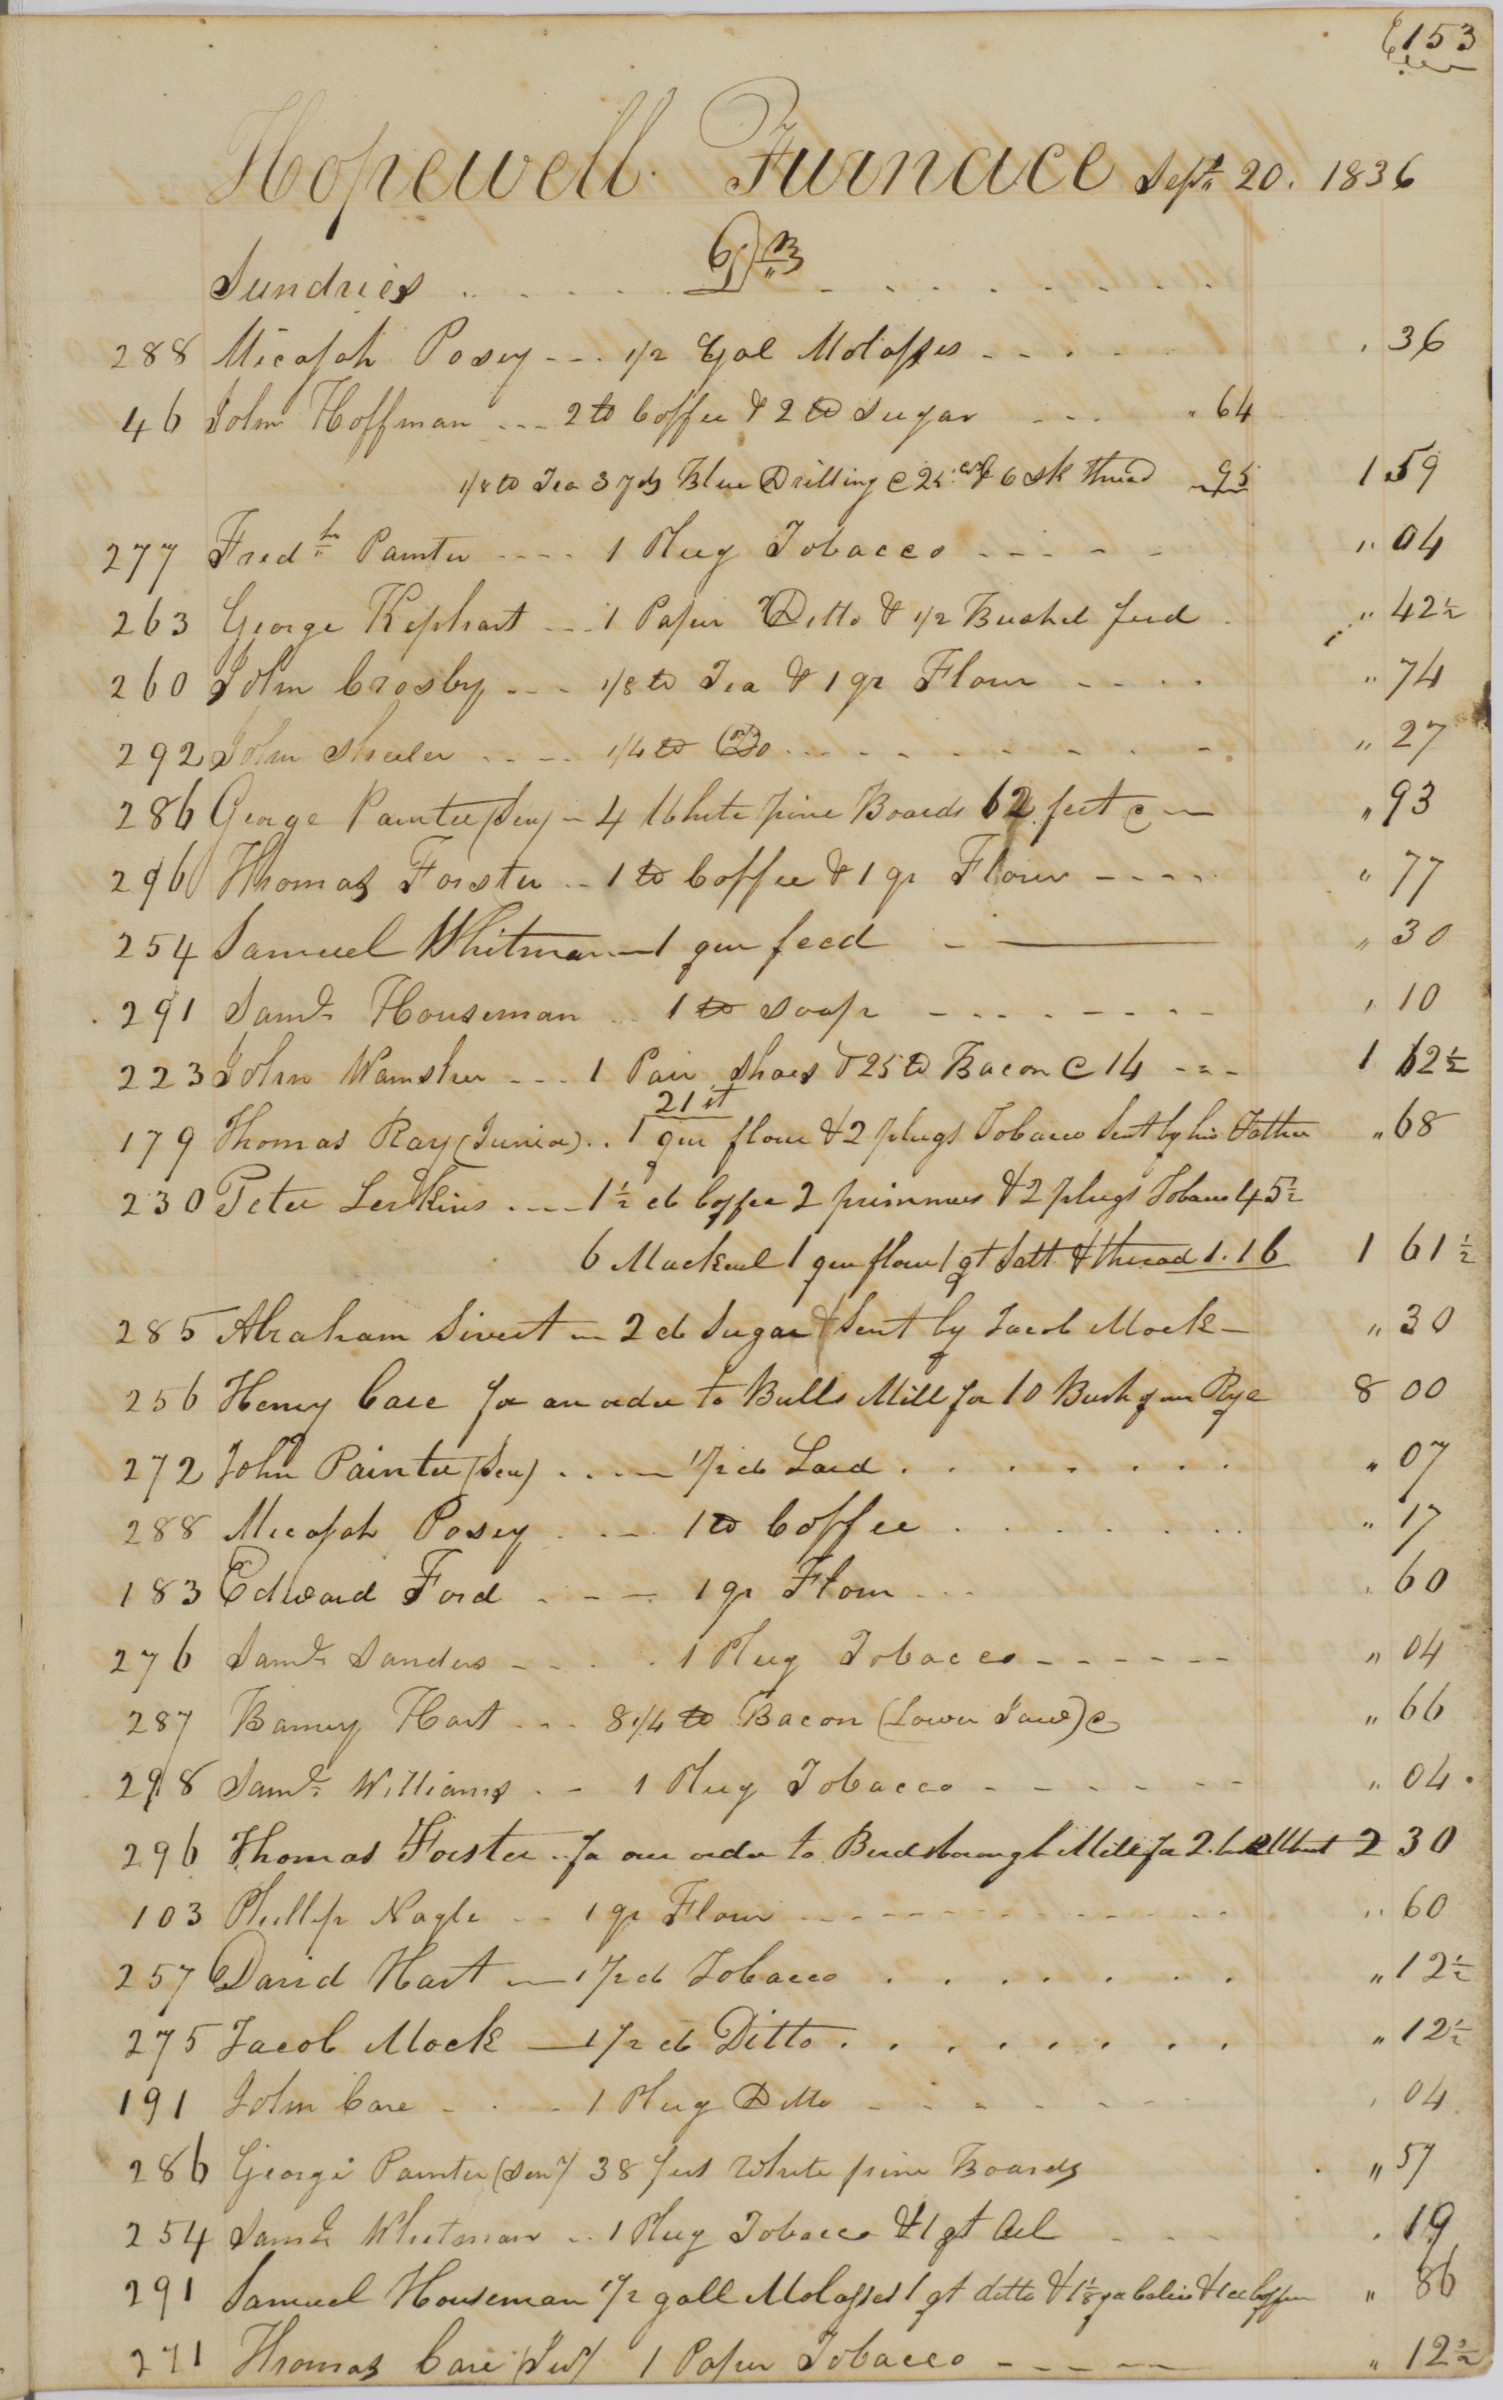 153
Hopewell Furnace Sept. 20. 1836
Sundries Dr
288 Micajah Posey 1/2 Gal Molasses 36
46 John Hoffman 2 lb Coffee & 2 lb Sugar 64
1/8 lb Tea 3 yds Blue Drilling @ 25 cts & 6 sk thread 95 1 59
277 Fredk Painter 1 Plug Tobacco 04
263 George Kephart 1 Paper Ditto & 1/2 Bushel feed 42 1/2
260 John Crosby 1/8 lb Tea & 1 qr Flour 74
292 John Sheeler 1/4 lb Do 27
286 George Painter (Sen) 4 White pine Boards 62 feet @ 93
296 Thomas Forster 1 lb Coffee & 1 qr Flour 77
254 Samuel Whitman 1 qur feed 30
291 Saml. Houseman 1 lb Soap 10
223 John Wamsher 1 Pair Shoes & 25 lb Bacon @ 14 1 62 1/2
21st
179 Thomas Ray (Junior) 1 qur flour & 2 plugs Tobacco Sent by his Father 68
230 Peter Lerkins 1 1/2 lb Coffee 2 & 2 plugs Tobacco 45 1/2
6 Mackerel 1 qur flour 1 qt Salt & thread 1.16 1 61 1/2
285 Abraham Sivert 2 lb Sugar Sent by Jacob Mock 30
256 Henry Care for an order to Bulls Mill for 10 Bush of Rye 8 00
272 John Painter (Sen) 1/2 lb Lard 07
288 Micajah Posey 1 lb Coffee 17
183 Edward Ford 1 qr Flour 60
276 Saml. Sanders 1 Plug Tobacco 04
287 Barney Hart 8 1/4 lb Bacon (Lower Jaw) @ 66
298 Saml. Williams 1 Plug Tobacco 04
296 Thomas Forster for an order to Birdsborough Mill for 2 2 30
103 Phillip Nagle 1 qr Flour 60
257 David Hart 1/2 lb Tobacco 12 1/2
275 Jacob Mock 1/2 lb Ditto 12 1/2
191 John Care 1 Plug Ditto 04
286 George Painter (Senr) 38 feet White pine Boards 57
254 Saml. Whitman 1 Plug Tobacco & 1 qt Oil 19
291 Samuel Houseman 1/2 gall Molasses 1 qt ditto & 1 1/8 Calico & 1 lb Coffee 86
271 Thomas Care 1 Paper Tobacco 12 1/2